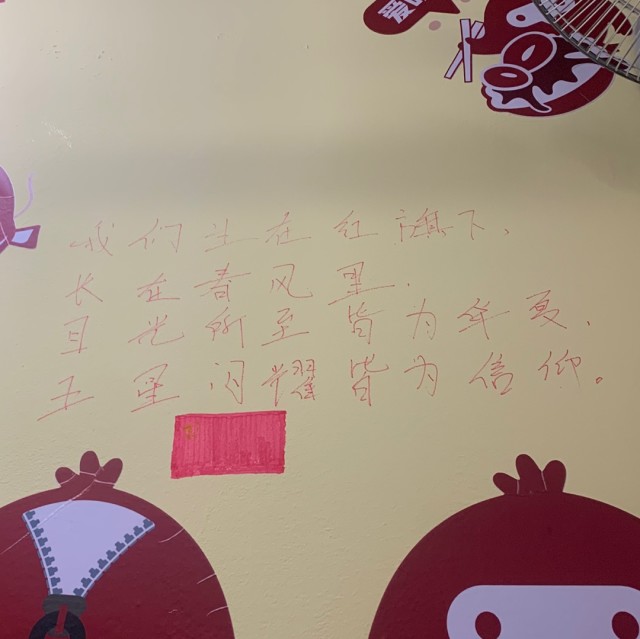 爱
我们生在红旗下、
长在春风里.
目光所至皆为华夏、
五星闪耀皆为信仰。